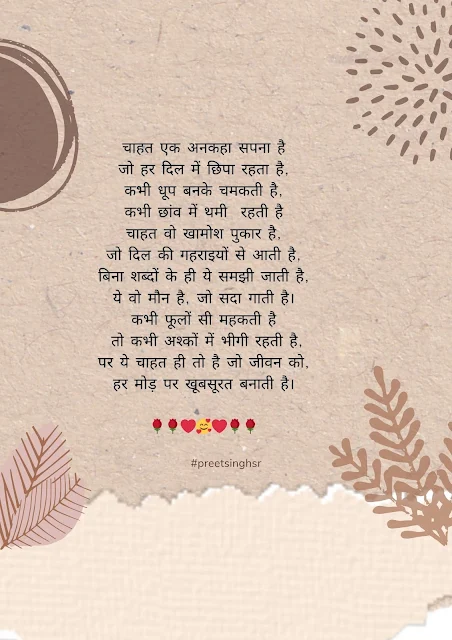 चाहत एक अनकहा सपना है
जो हर दिल में छिपा रहता है,
कभी धूप बनके चमकती है,
कभी छांव में थमी रहती है
चाहत वो खामोश पुकार है,
जो दिल की गहराइयों से आती है,
बिना शब्दों के ही ये समझी जाती है,
ये वो मौन है, जो सदा गाती है।
कभी फूलों सी महकती है
तो कभी अश्कों में भीगी रहती है,
पर ये चाहत ही तो है जो जीवन को,
हर मोड़ पर खूबसूरत बनाती है।
🌹🌹❤️🥰❤️🌹🌹
#preetsinghsr